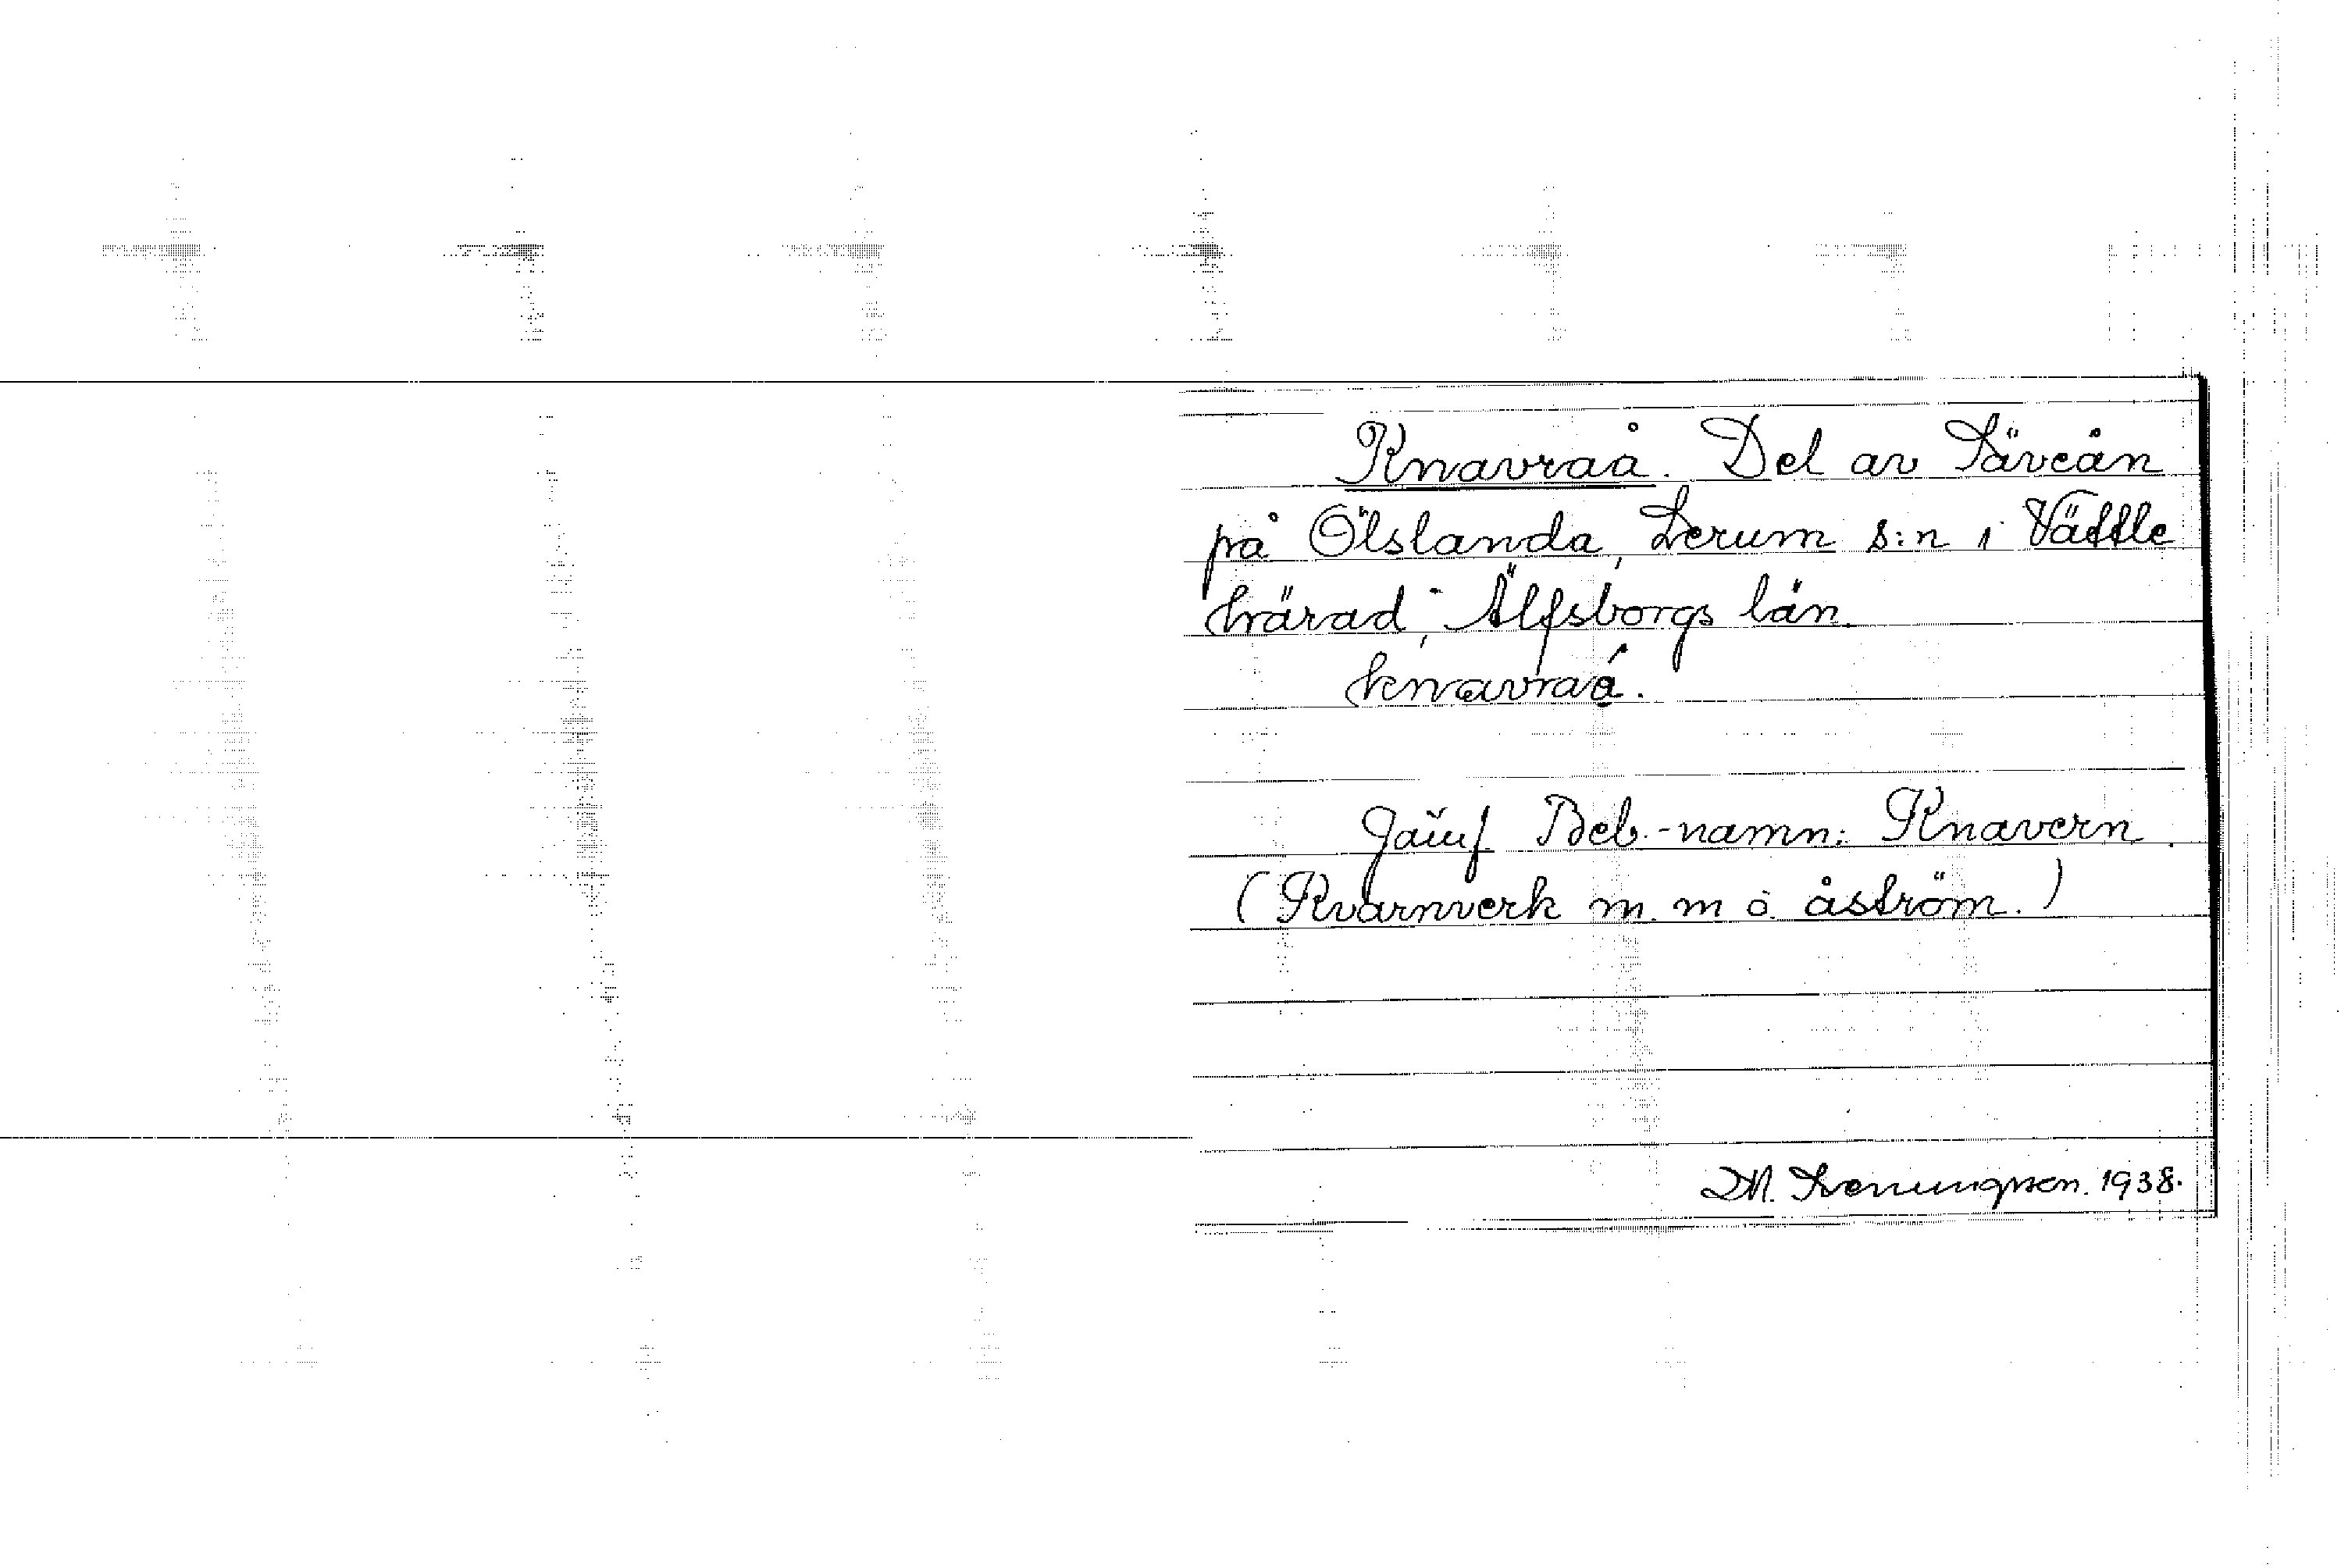 Knavraå. Del av Säveån
på Ölslanda, Lerum s:n i Vättle
härad, Älfsborgs län.
knavraá.
Jämf. Beb.-namn: Knavern.
(Kvarnverk m. m ö. åström.)
1938.